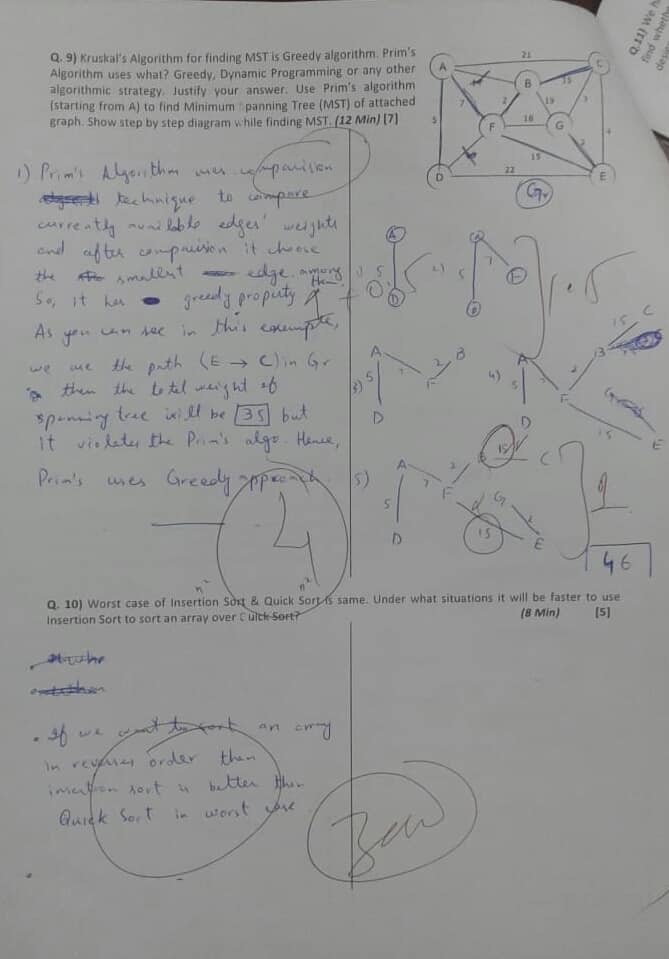 Q. 9) Kruskal's Algorithm for finding MST is Greedy algorithm. Prim's
Algorithm uses what? Greedy, Dynamic Programming or any other
algorithmic strategy. Justify your answer. Use Prim's algorithm
(starting from A) to find Minimum Spanning Tree (MST) of attached
graph. Show step by step diagram while finding MST. (12 Min) [7]
21
A
B
C
15
7
2
19
3
5
F
18
G
4
2
15
D
22
E
Gr
Q.11) We
find wheth
1) Prim's Algorithm uses comparision
technique to compare
currently available edges' weights
and after comparision it choose
the smallest edge. among them.
So, it has greedy property
As you can see in this example,
we use the path (E → C) in Gr
then the total weight of
spanning tree will be 35 but
it violates the Prim's algo. Hence,
Prim's uses Greedy approach.
4
1)
A
5
D
2)
A
5
7
F
D
3)
A
5
7
F
2
B
D
4)
A
5
7
F
2
B
15
C
G
15
E
D
5)
A
5
7
F
2
15
C
G
2
15
E
D
46
n²
n²
Q. 10) Worst case of Insertion Sort & Quick Sort is same. Under what situations it will be faster to use
Insertion Sort to sort an array over Quick Sort? (8 Min) [5]
. If we want to sort an array
in reverse order then
insertion sort is better then
Quick Sort in worst case